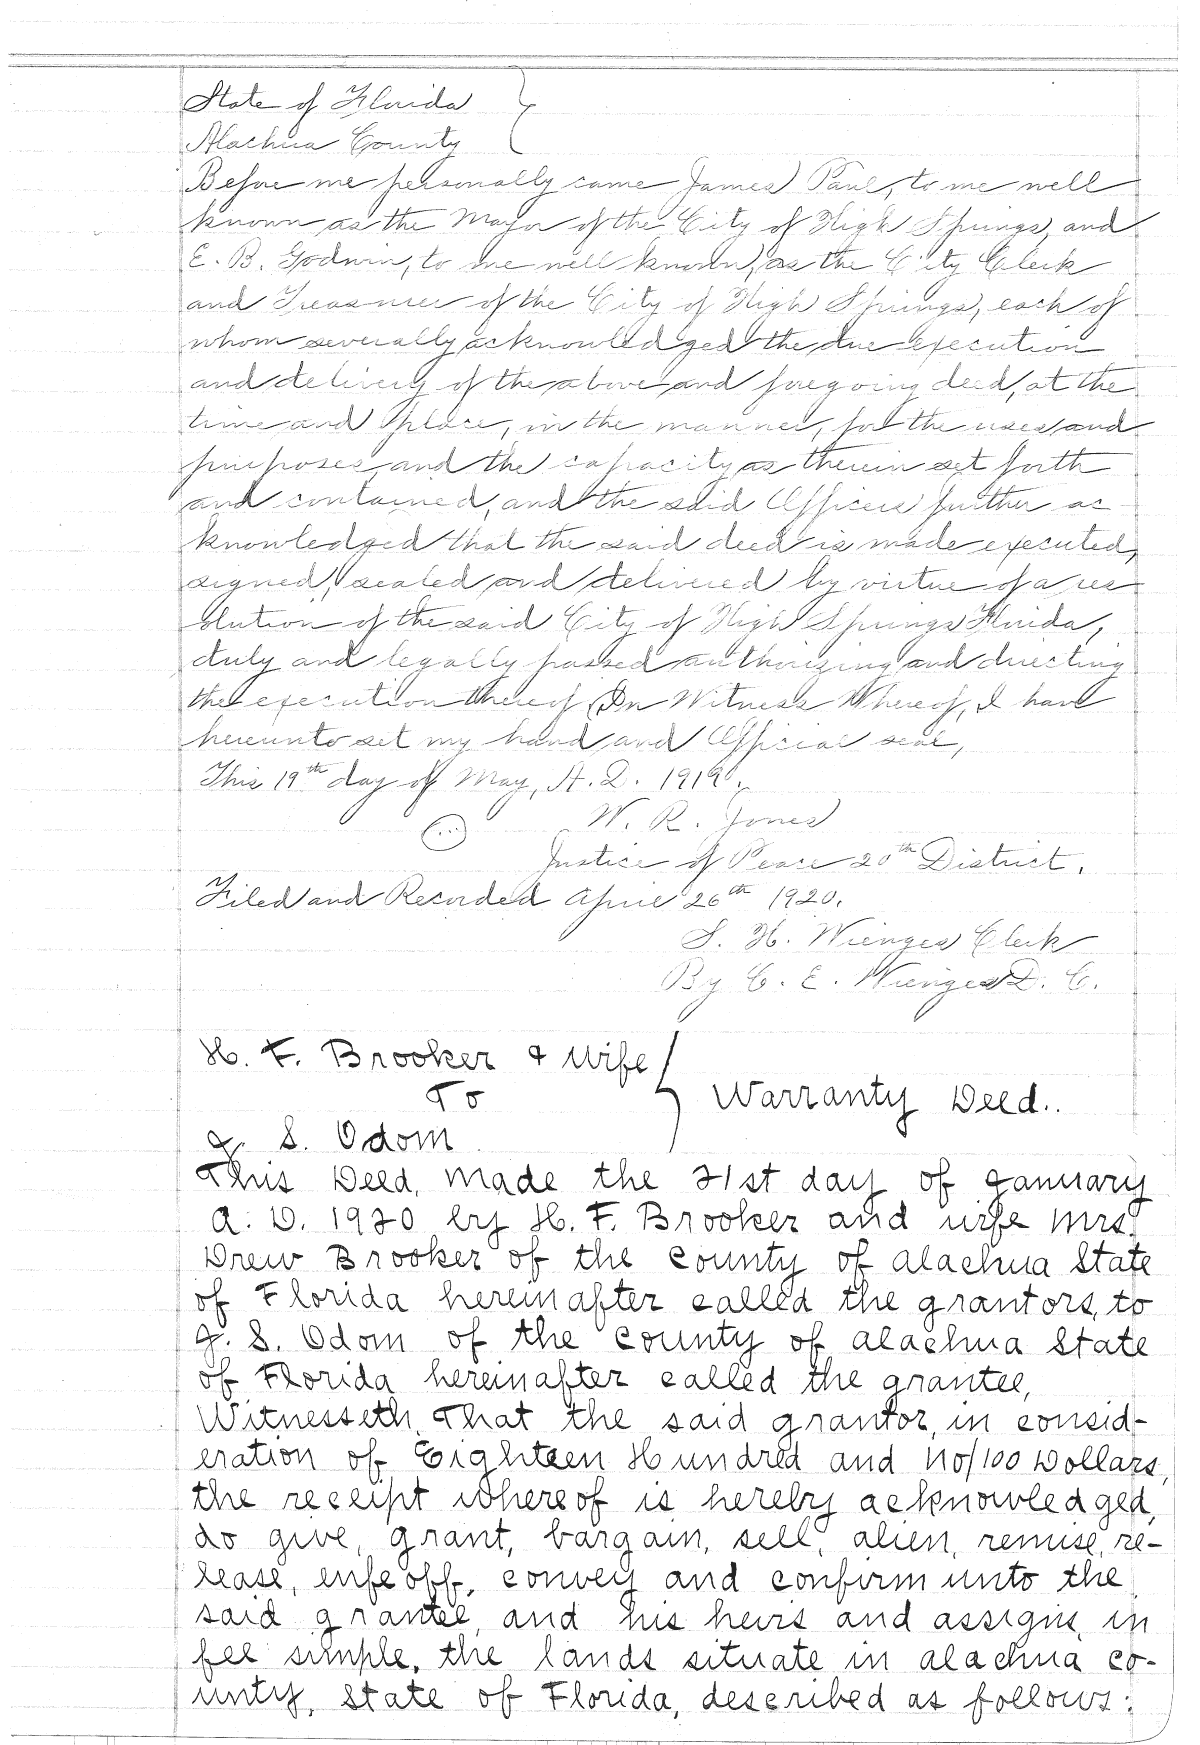 State of Florida
Alachua County
Before me personally came James Paul, to me well
known as the Mayor of the City of High Springs, and
E. B. Godwin, to me well known, as the City Clerk
and Treasurer of the City of High Springs, each of
whom severally acknowledged the due execution
and delivery of the above and foregoing deed, at the
time and place, in the manner, for the uses and
purposes, and the capacity as therein set forth
and contained, and the said Officers further ac-
knowledged that the said deed is made executed,
signed, sealed and delivered by virtue of a res
olution of the said City of High Springs Florida,
duly and legally passed authorizing and directing
the execution thereof, In Witness Whereof, I have
hereunto set my hand and Official seal,
This 19th day of May, A. D. 1919.
W. R. Jones
Justice of Peace 20th District.
Filed and Recorded April 26th 1920.
S. H. Wienges Clerk
By C. E. Wienges D. C.
H. F. Brooker & Wife
To
Warranty Deed..
J. S. Odom
This Deed, Made the 21st day of January
A. D. 1920 by H. F. Brooker and wife Mrs.
Drew Brooker of the County of Alachua State
of Florida hereinafter called the grantors, to
J. S. Odom of the County of Alachua State
of Florida hereinafter called the grantee,
Witnesseth, That the said grantor, in consid-
eration of Eighteen Hundred and no/100 Dollars,
the receipt whereof is hereby acknowledged,
do give, grant, bargain, sell, alien, remise, re-
lease, enfeoff, convey and confirm unto the
said grantee, and his heirs and assigns, in
fee simple, the lands situate in Alachua Co-
unty, State of Florida, described as follows: